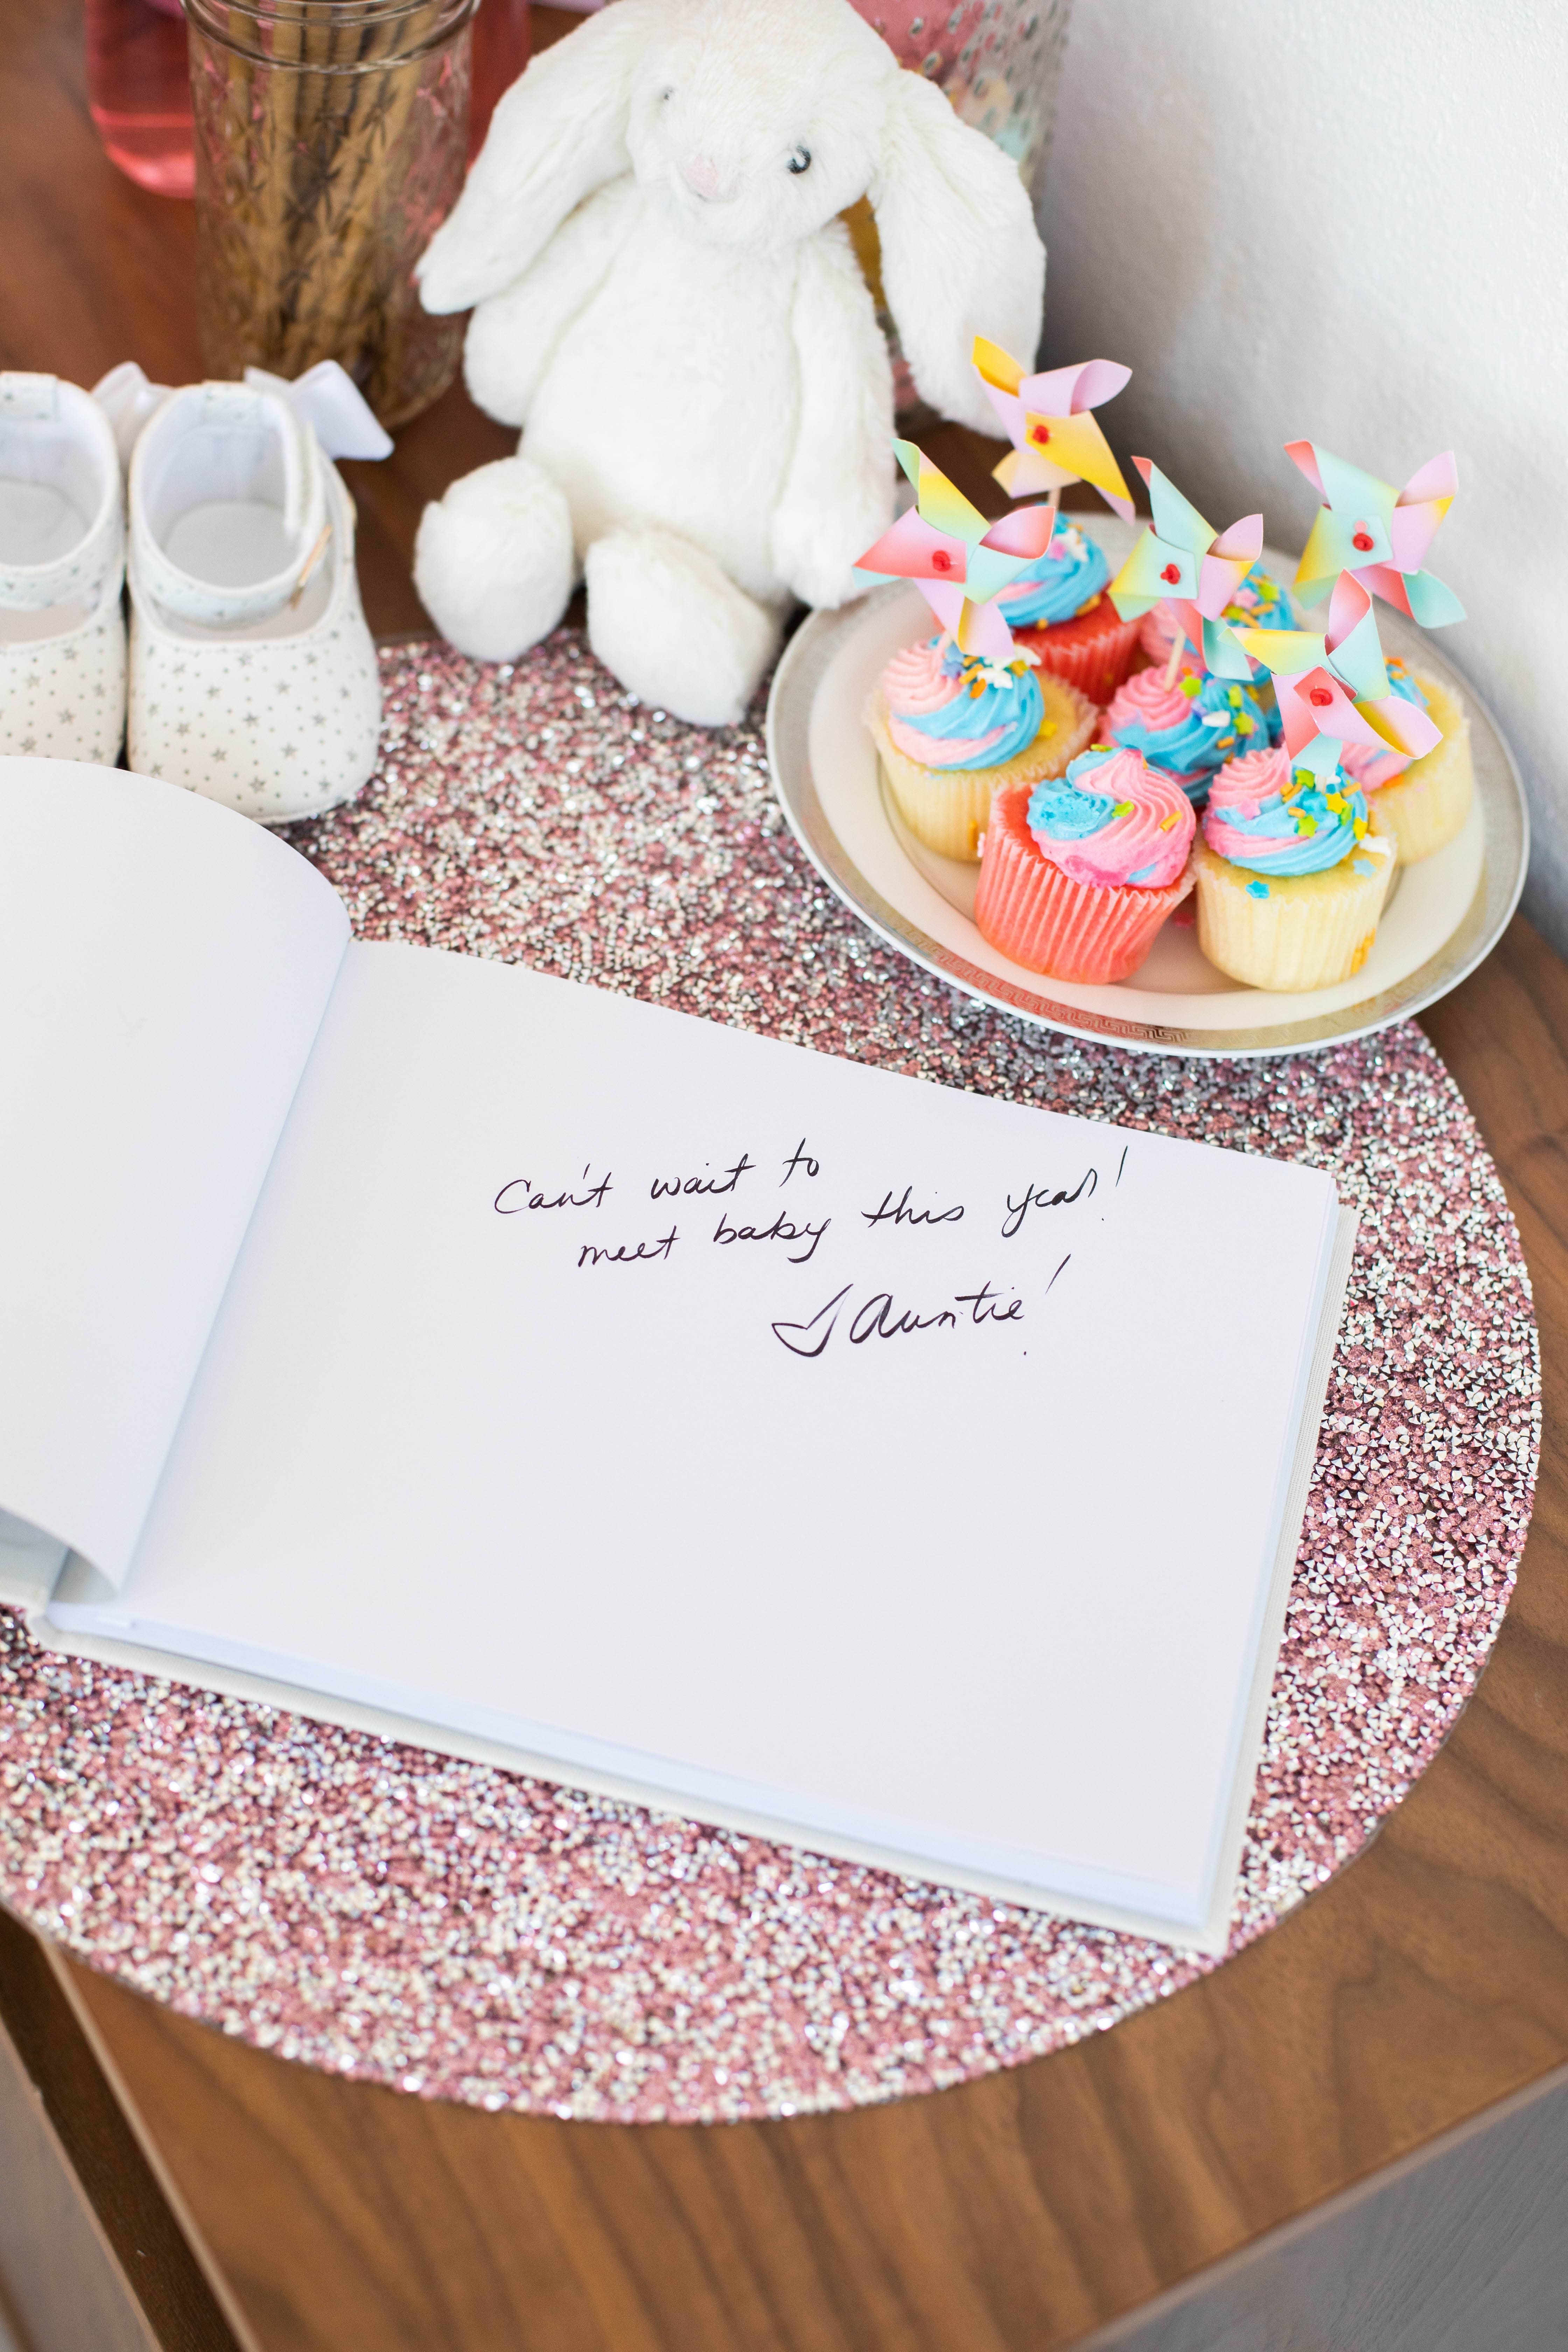 Can't wait to
meet baby this year!
♡ Auntie!